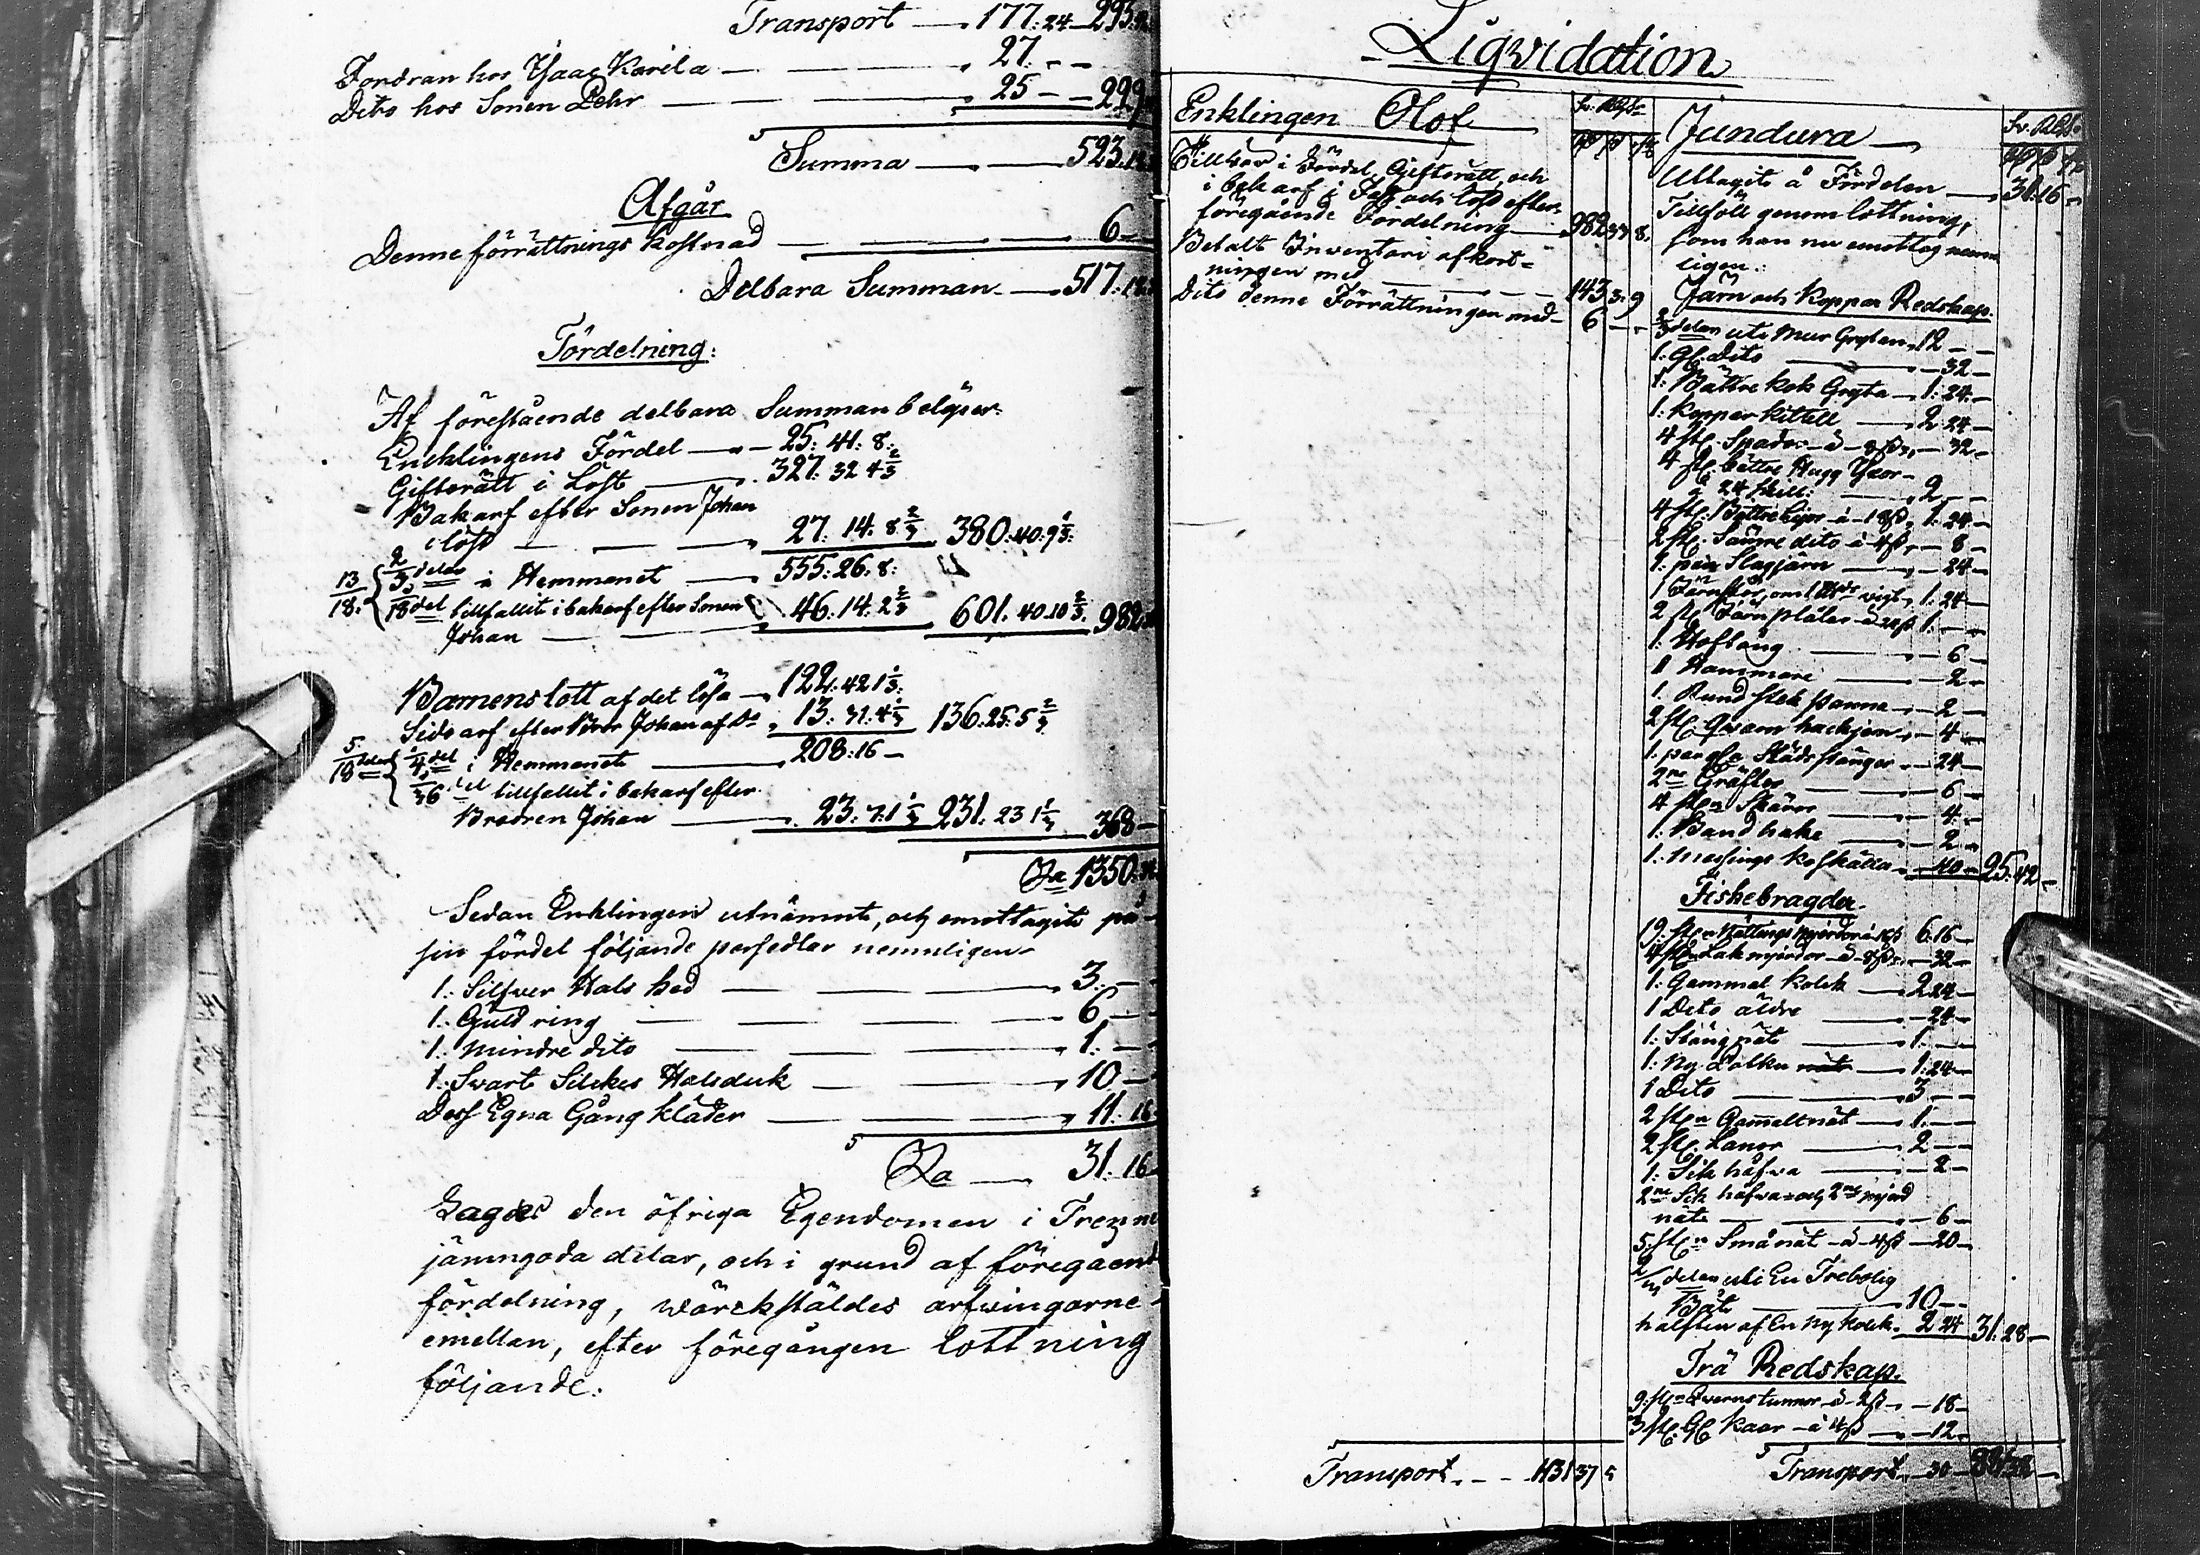 Transport — 177: 24 — 295:
Fordran hos Isaac Karila — — 27. - -
Dito hos Sonen Pehr — — 25 - - 229
Summa — — 523.
Afgår
Denne förrättnings kostnad — — 6 -
Delbara Summan — 517:
Fördelning:
Af förestående delbara Summan belöper:
Encklingens Fördel — 25: 41: 8:
Gifterätt i Löst — 327: 32 4 2/3
Bakarf efter Sonen Johan
i löst — — 27. 14. 8 2/3 380. 40. 9 1/3:
13/18. { 2/3 delar i Hemmanet — 555: 26: 8:
1/18 del tillfallit i bakarf efter Sonen 46. 14. 2 2/3 601. 40. 10 2/3. 982
Johan — —
Barnens lott af det lösa — 122: 42 1 1/3:
Sido arf efter Bror Johan af Do 13. 31. 4 1/3 136. 25. 5 2/3
5/18 delar { 1/4 del i Hemmanet — 208: 16 —
1/36 del tillfallit i bakarf efter
Brodren Johan — 23. 7. 1 1/3 231. 23 1 1/3 368 -
Sa 1350.
Sedan Enklingen utnämnt, och emottagit på
sin fördel följande persedlar nemnligen
1: Silfver Hals ked — — 3. -
1: Guld ring — — 6 -
1: mindre dito — — 1: -
1: Svart Silckes Halsduk — — 10 -
Dess Egna Gång kläder — — 11. 16
Sa — 31. 16
Lagdes den öfriga Egendomen i Trenne
jämngoda delar, och i grund af föregåend
fördelning, wärckstäldes arfwingarne
emellan, efter föregången lottning
följande:
Liqvidation
Enklingen Olof
Tillkom i Fördel, Gifterätt, och
i bak arf i Fast och löst efter
föregående Fördelning — 982 33 8.
Betalt Inventari afkort=
ningen med — — 143 3. 9
Dito denne Förrättningen med — 6 - -
Transport. - - 1131 37 5
Jundura —
Sv. Rgs.
Uttagit å Fördelen — 31. 16 -
Tillföll genom lottning,
som han nu emottog nemn
ligen:
Järn och Koppar Redskap.
2/3 delen uti Mur Grytan, 12 - -
1. Gl. Dito — — 32 —
1: Bättre kok Gryta — 1: 24. -
1: koppar kittell — 2. 24 —
4 st. Spador à 8 s. — 32 -
4 st. bättre Hugg Yxor
à 24 skill: — 2 - -
4 st. Bättre Lijor à 18 s. 1: 24 —
2 st. Sämre dito à 4 s. — 8 —
1: par Slagjärn — 24 —
1 Järnstör, om 1 vigt, 1: 24 —
2 st. Järn plåtar à 24 s 1: - -
1: Hoftång — — 6 —
1 Hammare — — 2 —
1. Rund stek panna — 2 —
2 st. Qwarn hackjern — 4 —
1. par Släds stänger — 24 —
2ne Gräftor — — 6 —
4 st. Skäror — 4 —
1. Band hake — — 2 —
1. Messings koskälla — 40 — 25. 42 —
Fiskebragder
19: st. Nättings mjerdor à 16 s 6. 16 —
4 st. Lakmjerdor à 8 s. — 32 —
1: Gammal Kolck — 2. 24 —
1 Dito äldre — — 24 —
1: Stängnät — 1: - -
1: Ny — 1: 24 —
1 Dito — — 3 - -
2 st. Gammalt nät — 1: - -
2 st. Lanor — 2 - -
1: Sik håfwa — — 2 —
2ne Sik håfwar och 2ne mjerd
nät — — 6 —
5. st. Små nät à 4 s — 20 —
delen uti En Trebolig
Båt — — 10 - -
hälften af En Ny Kolck. 2 24 31: 28 —
Trä Redskap.
9: st. Qwarns tunnor à 2 s. — 18 —
3 st. Gl. kaar — à 4 s — 12 —
Transport — 30 —